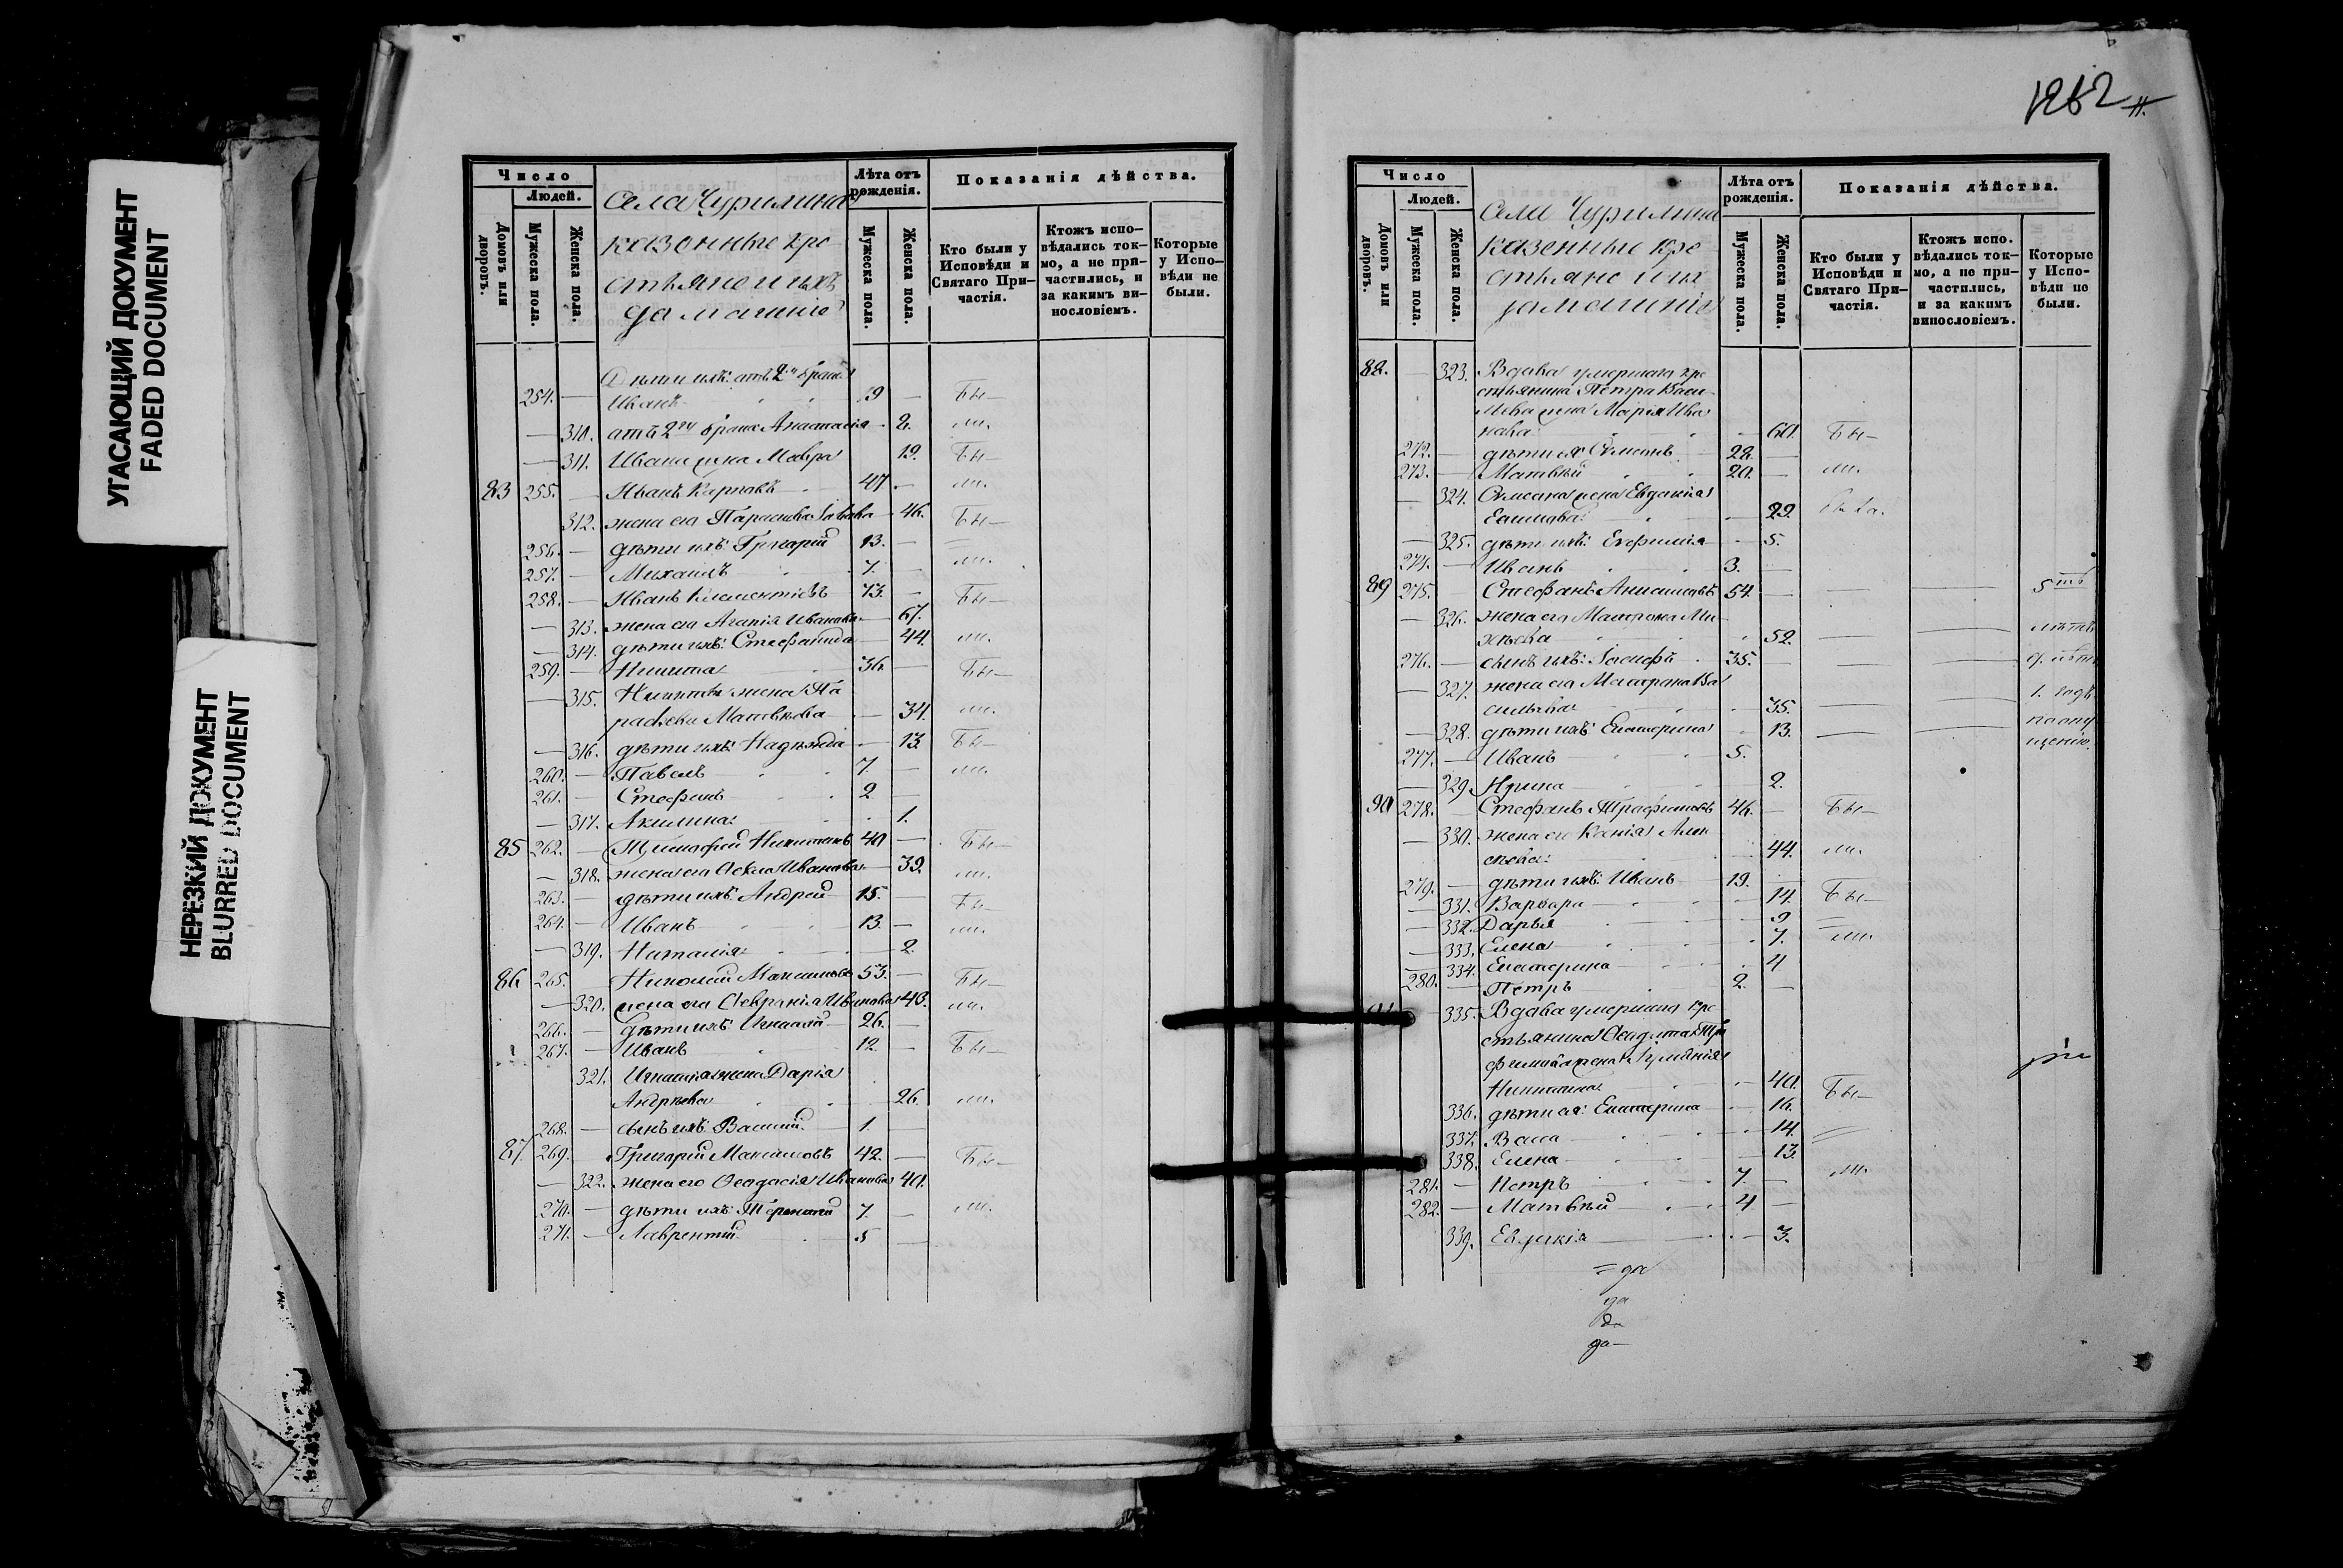 УГАСАЮЩИЙ ДОКУМЕНТ
FADED DOCUMENT
НЕРЕЗКИЙ ДОКУМЕНТ
BLURRED DOCUMENT
Число
Людей.
Домовъ или дворовъ.
Мужеска пола.
Женска пола.
Села Чурилина
казенные кре
стьяне и ихъ
домашніе
Лѣта отъ рожденія.
Мужеска пола.
Женска пола.
Показанія дѣйства.
Кто были у Исповѣди и Святаго Причастія.
Ктожъ исповѣдались токмо, а не причастились, и за какимъ винословіемъ.
Которые у Исповѣди не были.
Дѣти ихъ: отъ 2го брака
254. — Иванъ 19 — Бы—
— 310. отъ 2го брака Анастасія — 2. ли.
— 311. Ивана жена Мавра 19. Бы—
83 255. — Иванъ Карповъ 47 — ли.
312. жена его Параскева — 46. Бы—
256. — дѣти ихъ: Григорій 13. —
257. — Михаилъ 7. — ли.
258. — Иванъ Климентіевъ 73. — Бы—
— 313. жена его Агапія Иванова — 67.
— 314. дѣти ихъ: Стефанида — 44. ли.
259. — Никита 36. — Бы—
— 315. Никиты жена Па
раскева Матвѣева — 34. ли.
— 316. дѣти ихъ: Надежда — 13. Бы—
260. — Павелъ 7. — ли.
261. — Стефанъ 2 —
— 317. Акилина 1.
85 262. — Тимофей Никитинъ 40 — Бы—
— 318. жена его Ѳекла Иванова — 39. ли.
263. — дѣти ихъ: Андрей 15. — Бы—
264. — Иванъ 13. — ли.
— 319. Наталія — 2.
86 265. Николай Максимовъ 53. — Бы—
— 320. жена его Ѳевронія Иванова 43. ли.
266. — Дѣти ихъ: Игнатій 26. —
267. — Иванъ 12. — Бы—
321. Игнатія жена Дарія
Андреева 26. ли.
268. — сынъ ихъ: Василій 1. —
87. 269. Григорій Максимовъ 42. — Бы—
— 322. жена его Ѳеодосія Иванова 40.
270. — дѣти ихъ: Терентій 7. — ли.
271. — Лаврентій 5 —
1262
Число
Людей.
Домовъ или дворовъ.
Мужеска пола.
Женска пола.
Села Чурилина
казенные кре
стьяне и их
домашніе
Лѣта отъ рожденія.
Мужеска пола.
Женска пола.
Показанія дѣйства.
Кто были у Исповѣди и Святаго Причастія.
Ктожъ испо. вѣдались токмо, а не причастились, и за какимъ винословіемъ.
Которые у Исповѣди не были.
88. — 323. Вдова умершаго кре
стьянина Петра Васи
льева жена Марія Ива
нова — 60. Бы—
272. — дѣти ея Симеонъ 28. —
273. — Матвѣй 20. — ли.
— 324. Симеона жена Евдокія
— 29.
— 325. дѣти ихъ: Евфимія — 5.
274. — Иванъ 3. —
89 275. — Стефанъ Анисимовъ 54. — — — 5ть
— 326. жена его Матрона Ми
хѣева 52. — — лѣтъ
276. — сынъ ихъ: Іосифъ 35. — — —
— 327. жена его Матрона Ва
сильева 35. — — 1. годъ
— 328. дѣти ихъ: Екатерина 13. — — по опу
277. — Иванъ 5. щенію.
— 329 Ирина 2.
90 278. — Стефанъ Трофимовъ 46. — Бы—
— 330. жена его Ксенія Алек
сѣева 44. ли.
279. — дѣти ихъ: Иванъ 19. —
— 331. Варвара — 14. Бы—
— 332. Дарья — 9
— 333. Елена — 7. ли.
— 334. Екатерина 4
280. — Петръ 2. —
91 — 335. Вдова умершаго кре
стьянина Ѳеодота Тро
фимова жена
Никитина — 40. Бы—
336. дѣти ея: Екатерина — 16.
337. Васса — 14.
338. Елена — 13.
281. — Петръ 7. — ли.
282. — Матвѣй 4 —
339. Евдокія — 3.
= да
да
да
да—